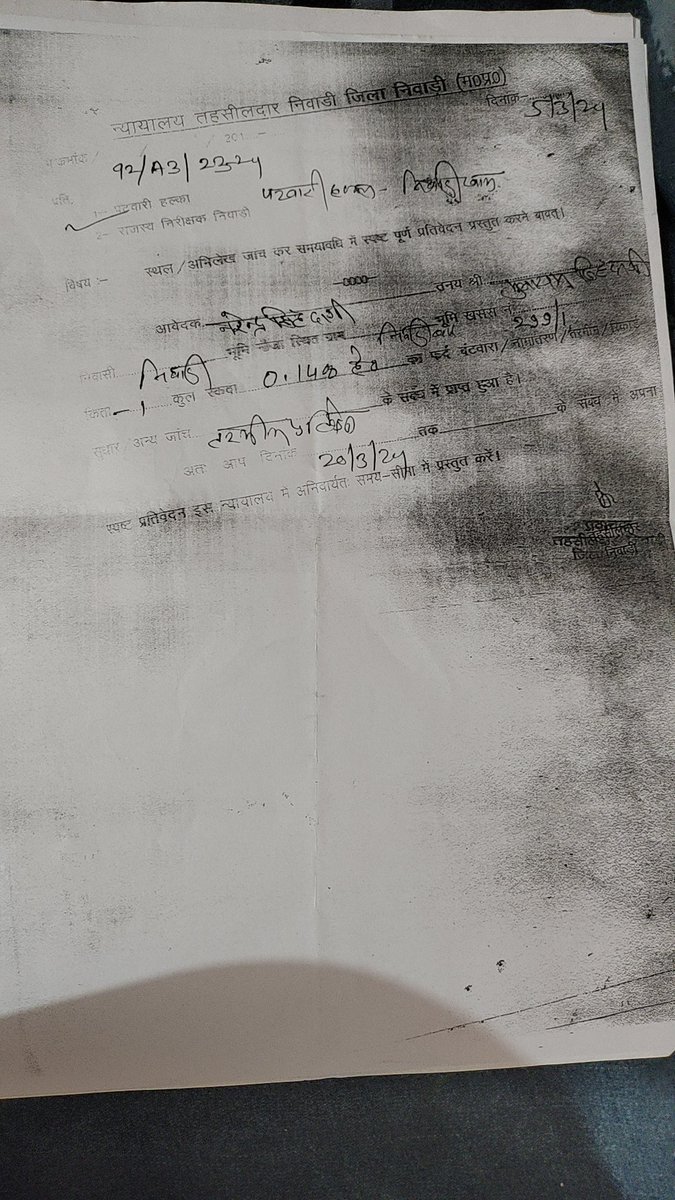 न्यायालय तहसीलदार निवाडी जिला निवाडी (म०प्र०)
दिनांक- 5/3/24
क्रमांक / / 201 -
92/A3/23-24
प्रति,
1- पटवारी हल्का पटवारी हल्का - निवाडी खास
2- राजस्व निरीक्षक निवाडी
विषय :- स्थल / अभिलेख जांच कर समयावधि में स्पष्ट पूर्ण प्रतिवेदन प्रस्तुत करने बावत्।
-0000-
आवेदक नरेन्द्र सिंह तनय श्री
निवासी निवाडी भूमि स्थित ग्राम भूमि खसरा नं. 299/1
किता -1 कुल रकवा 0.140 हे० का फर्द बंटवारा / नामांतरण / तरमीम / रिकार्ड
सुधार, अन्य जांच के संबंध में प्राप्त हुआ है।
अतः आप दिनांक 20/3/24 तक के संबंध में अपना
स्पष्ट प्रतिवेदन इस न्यायालय में अनिवार्यतः समय-सीमा में प्रस्तुत करें।
तहसीलदार निवाडी
जिला निवाडी